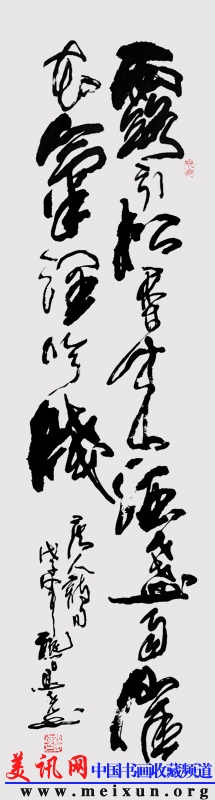 露引松香来酒盏雨催
花氣潤吟牋
唐人詩句
美讯网 中国书画收藏频道
www.meixun.org